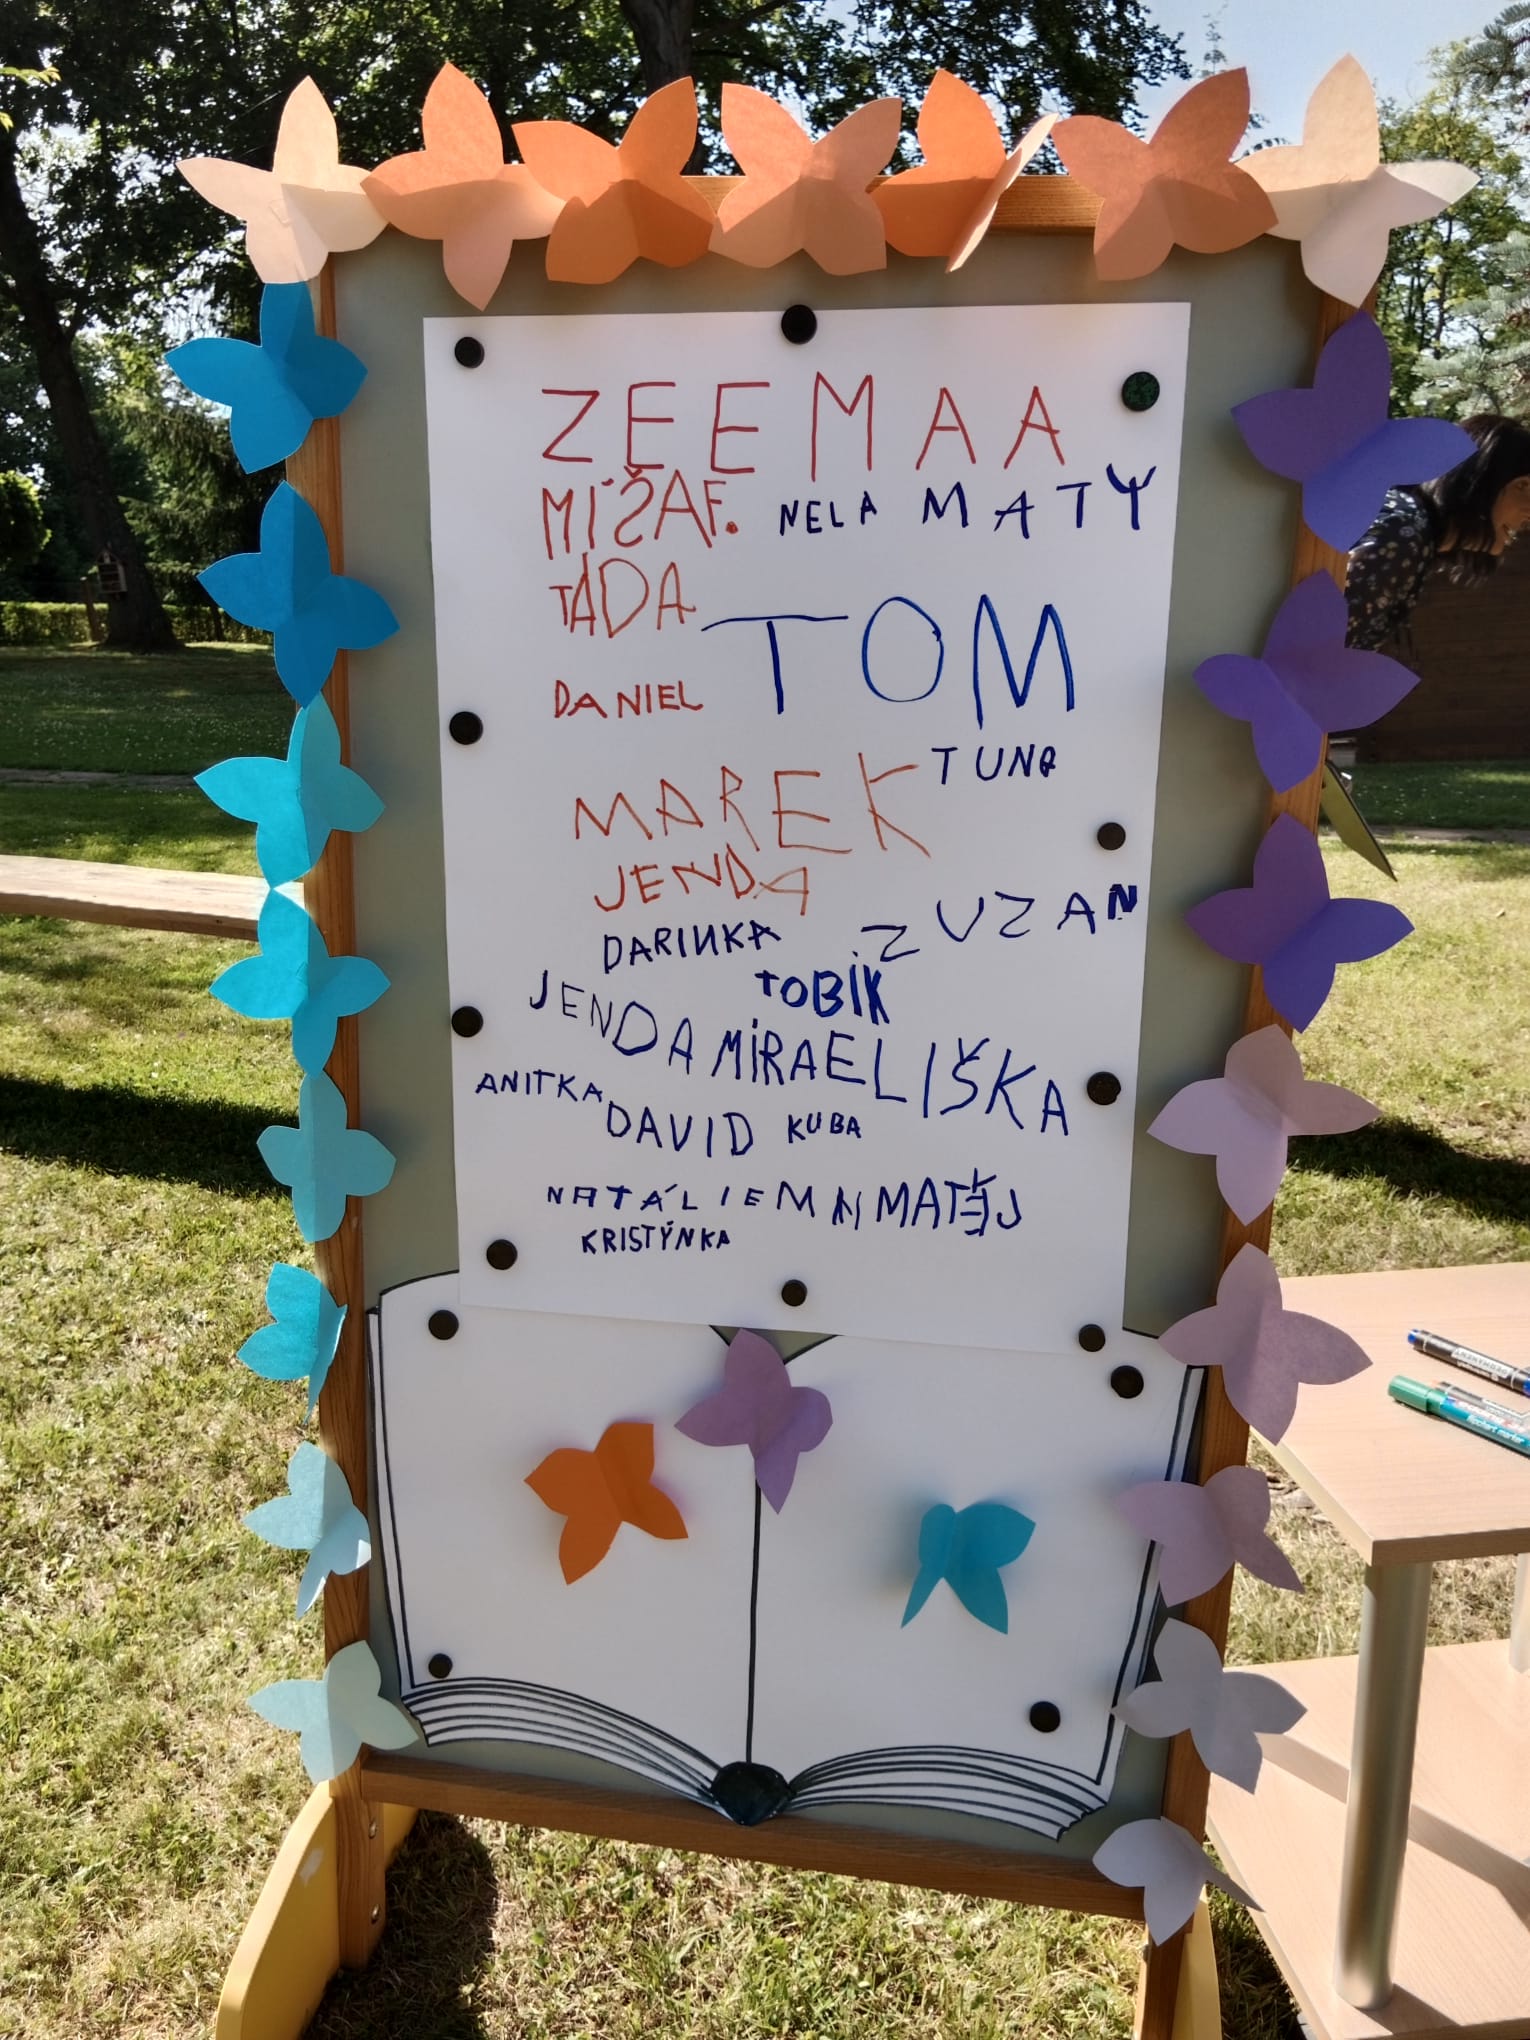 ZEEMAA
MÍŠA F. NELA MATY
TÁDA
TOM
DANIEL
TUNG
MAREK
JENDA
ZUZAN
DARINKA
TOBIK
JENDA MIRA ELIŠKA
ANITKA DAVID KUBA
NATÁLIE MATĚJ
KRISTÝNKA